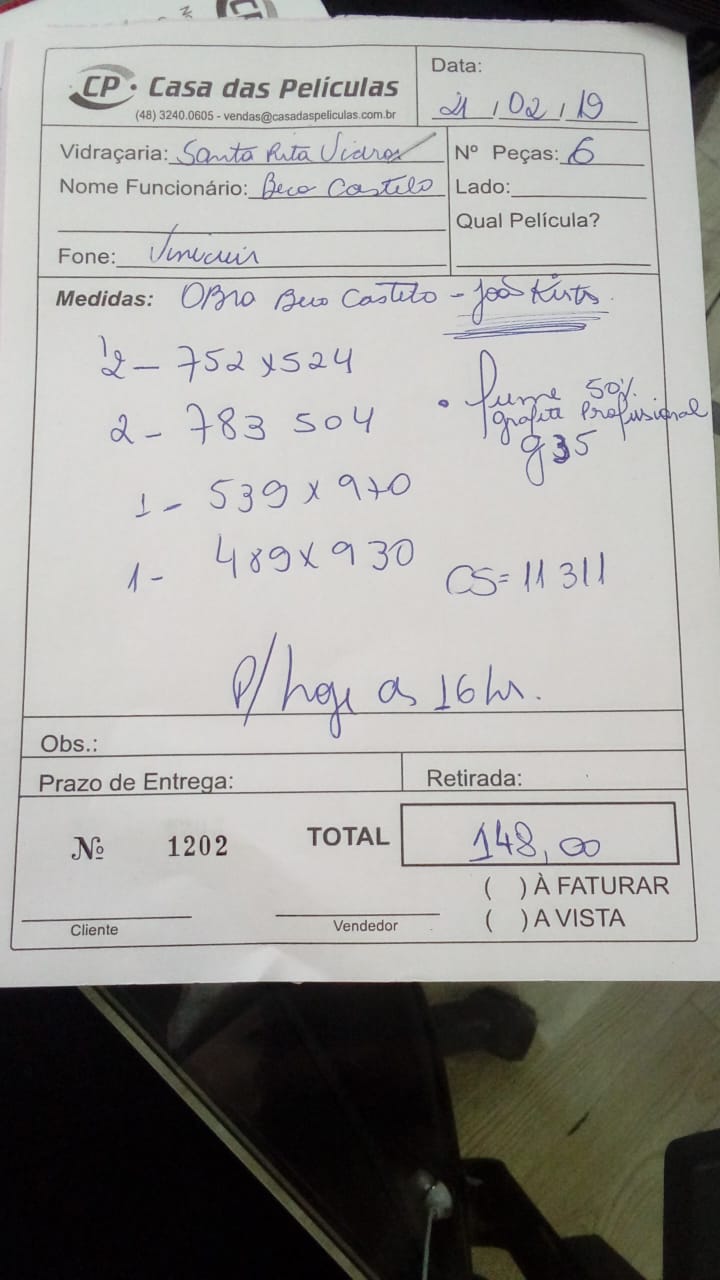 CP • Casa das Películas
(48) 3240.0605 - vendas@casadaspeliculas.com.br
Data:
21 / 02 / 19
Vidraçaria: Santa Rita Vidros
Nº Peças: 6
Nome Funcionário: Beco Castelo
Lado:
Qual Película?
Fone:
Medidas: OBRA Beco Castelo - João
2 - 752 x 524
2 - 783 504
1 - 539 x 970
1 - 489 x 930
• fume 50%
grafite Profissional
g35
CS = 11 311
P/ hoje as 16 hr.
Obs.:
Prazo de Entrega:
Retirada:
Nº 1202
TOTAL 148,00
( ) À FATURAR
( ) A VISTA
Cliente
Vendedor